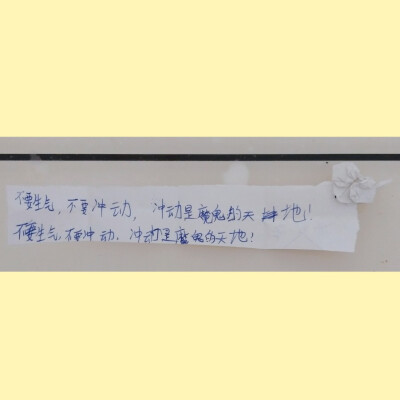 不要生气，不要冲动，冲动是魔鬼的天地！
不要生气，不要冲动，冲动是魔鬼的天地！